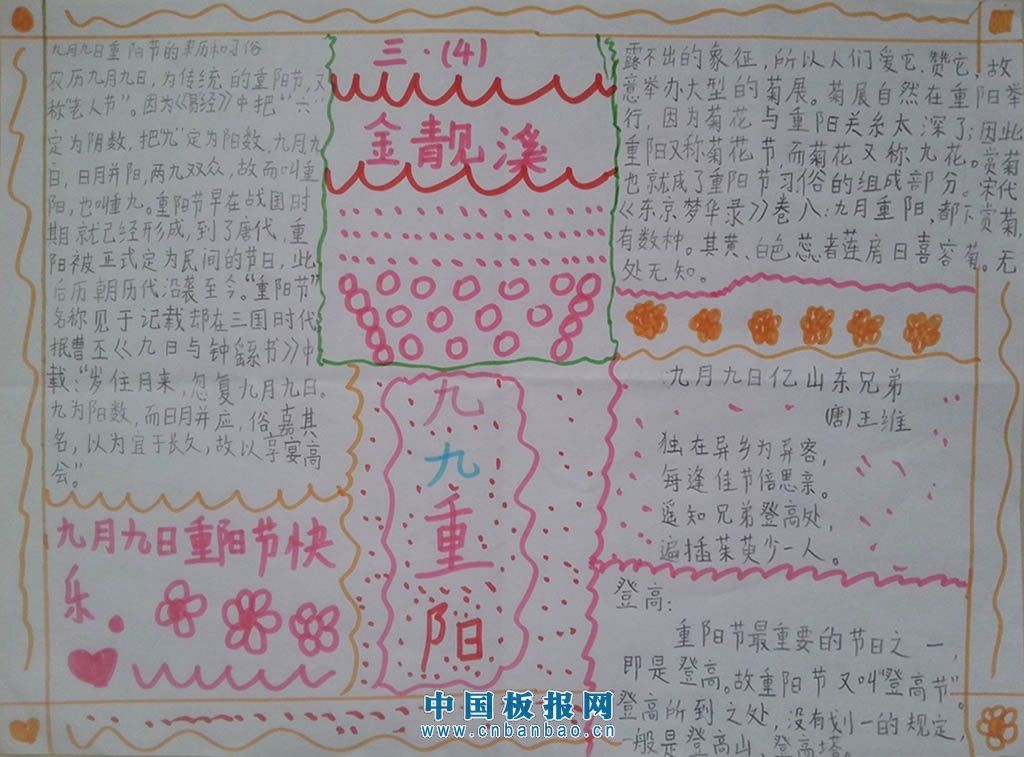 九月九日重阳节的来历和习俗
农历九月九日，为传统的重阳节，又
称“老人节”。因为《易经》中把“六”
定为阴数，把“九”定为阳数，九月九
日，日月并阳，两九双众，故而叫重
阳，也叫重九。重阳节早在战国时
期就已经形成，到了唐代，重
阳被正式定为民间的节日，此
后历朝历代沿袭至今。“重阳节”
名称见于记载却在三国时代
据曹丕《九日与钟繇书》中
载：“岁住月来，忽复九月九日。
九为阳数，而日月并应，俗嘉其
名，以为宜于长久，故以享宴高
会。”
九月九日重阳节快
乐。
三·(4)
金靓溪
九
九
重
阳
露不出的象征，所以人们爱它、赞它，故
意举办大型的菊展。菊展自然在重阳举
行，因为菊花与重阳关系太深了；因此
重阳又称菊花节，而菊花又称九花。赏菊
也就成了重阳节习俗的组成部分。宋代
《东京梦华录》卷八：九月重阳，都下赏菊，
有数种。其黄、白色蕊者莲房日喜容菊。无
处无知。
九月九日亿山东兄弟
(唐)王维
独在异乡为异客，
每逢佳节倍思亲。
遥知兄弟登高处，
遍插茱萸少一人。
登高：
重阳节最重要的节日之一，
即是登高。故重阳节又叫“登高节”。
登高所到之处，没有划一的规定，
一般是登高山、登高塔。
中国板报网
www.cnbanbao.cn